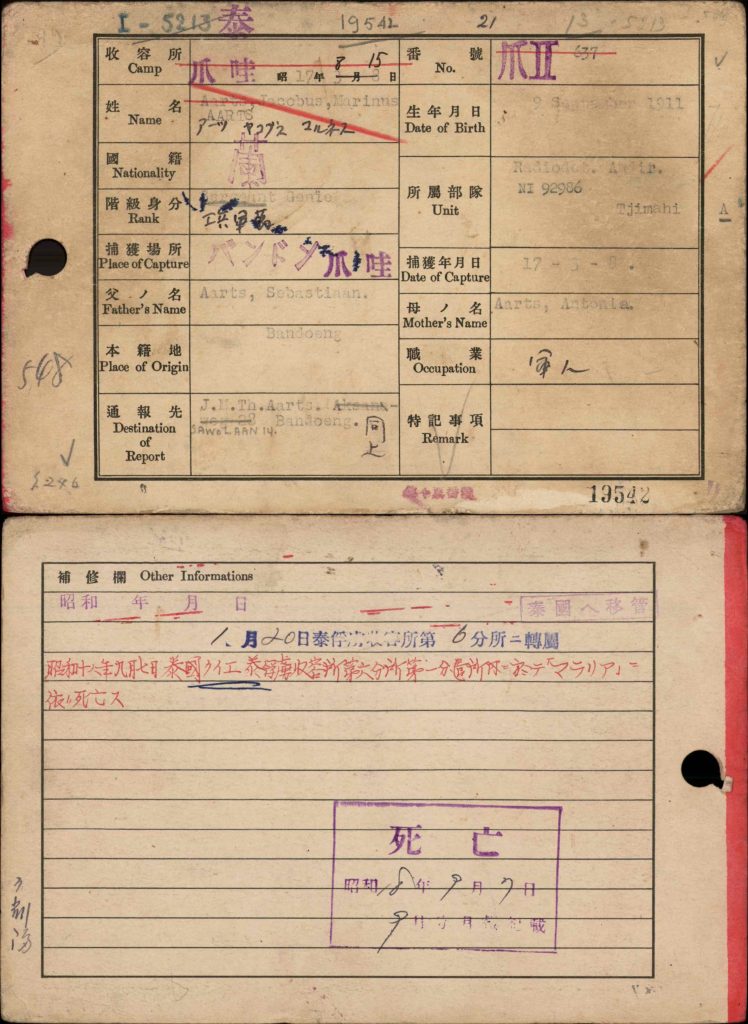 I-5213 泰 19542 21 13-5213
收容所 Camp 爪哇 昭 17 年 8 月 15 日
番號 No. 爪II 637
姓名 Name Aarts, Jacobus, Marinus
AARTS
アーツ ヤコブス マルネス
生年月日 Date of Birth 9 September 1911
國籍 Nationality 蘭
階級身分 Rank Sergeant Genie
工兵軍曹
所屬部隊 Unit Radiodet. Andir.
NI 92986
Tjimahi A
捕獲場所 Place of Capture バンドン 爪哇
捕獲年月日 Date of Capture 17 - 3 -
父ノ名 Father's Name Aarts, Sebastiaan.
母ノ名 Mother's Name Aarts, Antonia.
本籍地 Place of Origin Bandoeng
職業 Occupation 軍人
548
通報先 Destination of Report J.M.Th.Aarts.
22 Bandoeng.
SAWOLAAN 14.
同上
特記事項 Remark
19542
補修欄 Other Informations
昭和 年 月 日
泰國へ移管
1月20日泰俘虜收容所第6分所ニ轉屬
昭和十八年九月七日 泰國クイエ 泰俘虜收容所第六分所第一分遣所ニ於テ「マラリア」ニ
依リ死亡ス
死亡
昭和18年9月7日
9月